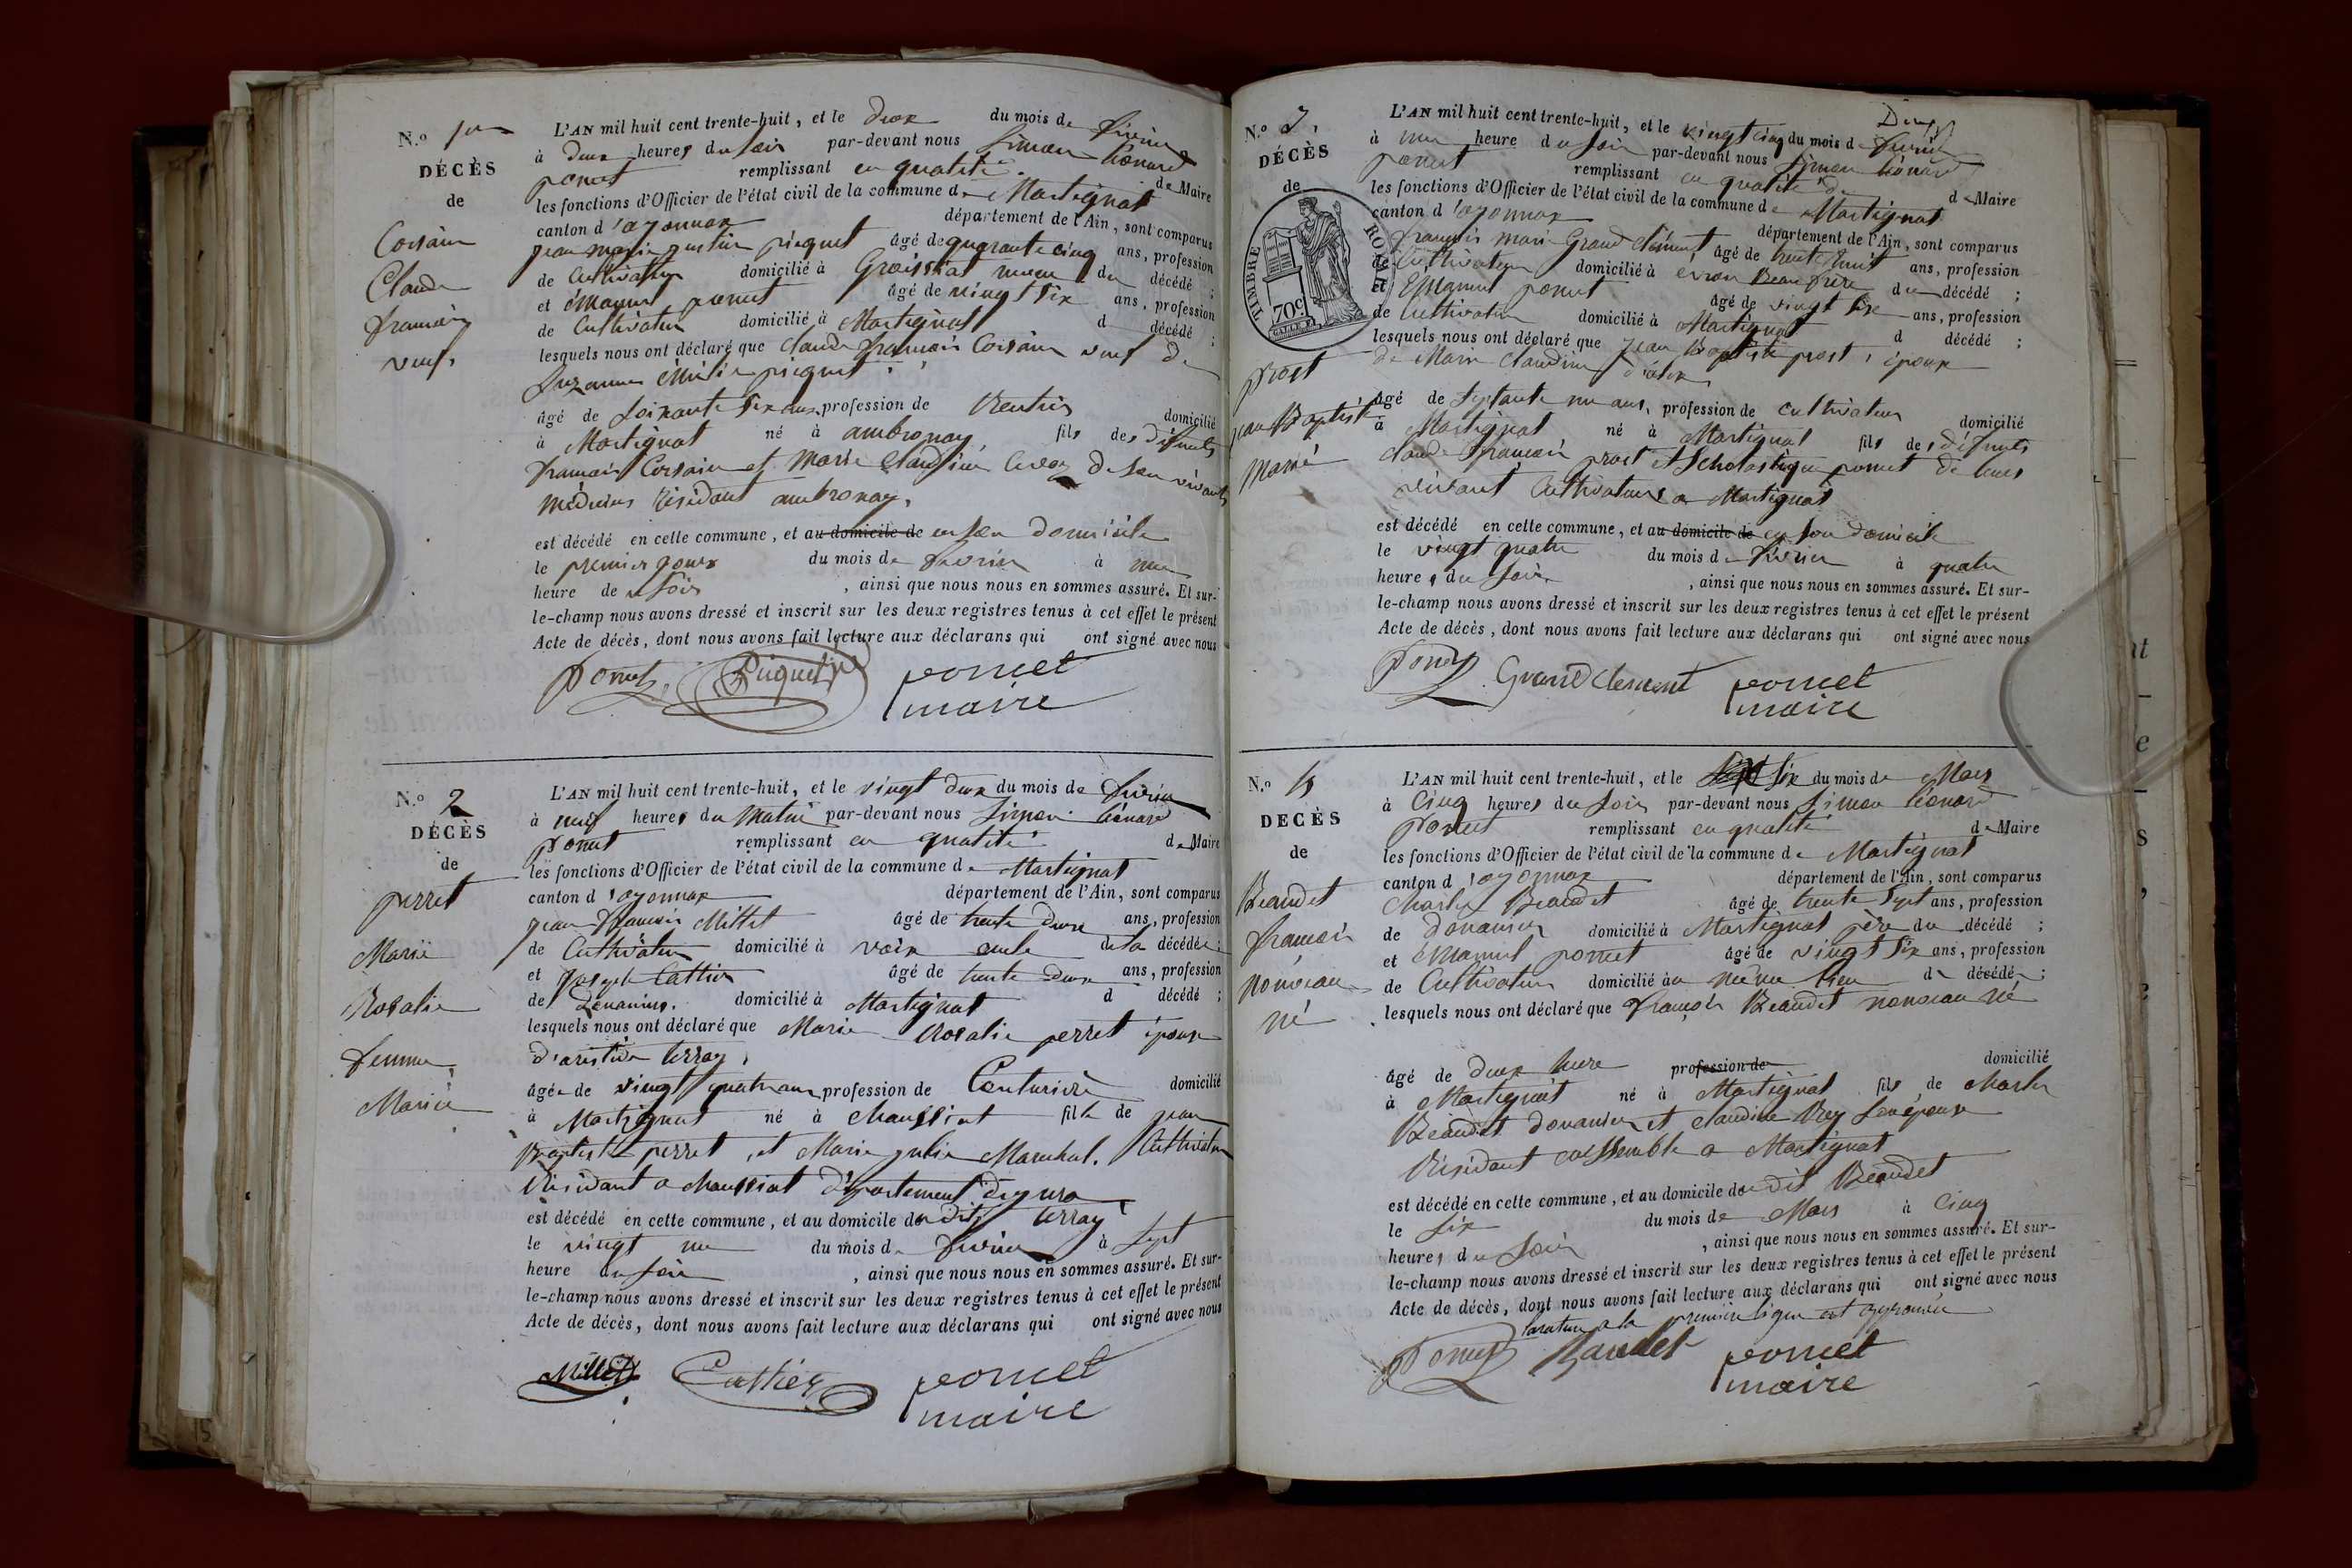 N.o 1er
DÉCÈS
de
Corsain
Claude
françois
veuf
L'AN mil huit cent trente-huit, et le deux du mois de février
à deux heures du soir par-devant nous Simon Léonard
poncet remplissant en qualité de Maire
les fonctions d'Officier de l'état civil de la commune de Martignat
canton d'oyonnax département de l'Ain, sont comparus
jean marie justin piquet âgé de quarante cinq ans, profession
de Cultivateur domicilié à Groissiat neveu du décédé ;
et émanuel poncet âgé de vingt six ans, profession
de Cultivateur domicilié à Martignat d décédé ;
lesquels nous ont déclaré que claude françois Corsain veuf de
Suzanne émélie piequet
âgé de soixante six ans, profession de Rentier domicilié
à Martignat né à ambronay, fils des défunts
francois Corsain et Marie Claudine de son vivants
médecins Résidant ambronay,
est décédé en cette commune, et au domicile de en son domicile
le premier jours du mois de février à une
heure de soir , ainsi que nous nous en sommes assuré. Et sur-
le-champ nous avons dressé et inscrit sur les deux registres tenus à cet effet le présent
Acte de décès, dont nous avons fait lecture aux déclarans qui ont signé avec nous
Poncet Piiquet poncet
maire
N.o 2
DÉCÈS
de
perret
Marie
Rosalie
femme
Mariée
L'AN mil huit cent trente-huit, et le vingt deux du mois de février
à neuf heures du matin par-devant nous Simon Léonard
poncet remplissant en qualité de Maire
les fonctions d'Officier de l'état civil de la commune de Martignat
canton d'oyonnax département de l'Ain, sont comparus
jean francois Millet âgé de trente deux ans, profession
de Cultivateur domicilié à oncle de la décédée ;
et joseph Cattier âgé de trente deux ans, profession
de Douanier. domicilié à Martignat d décédé ;
lesquels nous ont déclaré que Marie Rosalie perret épouse
d'aristide terray,
âgée de vingt quatre ans profession de Couturière domicilié
à Martignat né à chaussiat fille de jean
Baptiste perret, et Marie julie Marechal. Cultivateur
Résidant a chaussiat département du jura
est décédé en cette commune, et au domicile du dit terray
le vingt un du mois de février à sept
heure du soir , ainsi que nous nous en sommes assuré. Et sur-
le-champ nous avons dressé et inscrit sur les deux registres tenus à cet effet le présent
Acte de décès, dont nous avons fait lecture aux déclarans qui ont signé avec nous
Millet Cattier poncet
maire
N.o 3,
DÉCÈS
de
TIMBRE ROYAL
70c.
prost
jean Baptiste
Marié
L'AN mil huit cent trente-huit, et le vingt cinq du mois de février
à une heure du soir par-devant nous Simon Léonard
poncet remplissant en qualité de de Maire
les fonctions d'Officier de l'état civil de la commune de Martignat
canton d'oyonnax département de l'Ain, sont comparus
françois marie Grand clément âgé de trente huit ans, profession
de Cultivateur domicilié à Beau frère du décédé ;
et Emanuel poncet âgé de vingt six ans, profession
de Cultivateur domicilié à Martignat d décédé ;
lesquels nous ont déclaré que jean Baptiste prost, époux
de Marie Claudine
âgé de septante un ans, profession de cultivateur domicilié
à Martignat né à Martignat fils des défunts
claude françois prost et Scholastique poncet de leurs
vivant Cultivateurs a Martignat
est décédé en cette commune, et au domicile de en son domicile
le vingt quatre du mois de février à quatre
heures du soir , ainsi que nous nous en sommes assuré. Et sur-
le-champ nous avons dressé et inscrit sur les deux registres tenus à cet effet le présent
Acte de décès, dont nous avons fait lecture aux déclarans qui ont signé avec nous
Poncet Grandclement poncet
maire
N.o 4
DECÈS
de
Beaudet
francois
nouveau
né
L'AN mil huit cent trente-huit, et le six du mois de Mars
à Cinq heures du soir par-devant nous Simon Léonard
Poncet remplissant en qualité de Maire
les fonctions d'Officier de l'état civil de la commune de Martignat
canton d'oyonnax département de l'Ain, sont comparus
Charles Beaudet âgé de trente sept ans, profession
de douanier domicilié à Martignat père du décédé ;
et Emanuel poncet âgé de vingt six ans, profession
de Cultivateur domicilié au même lieu d décédé ;
lesquels nous ont déclaré que françois Beaudet nouveau né
âgé de deux heure profession de domicilié
à Martignat né à Martignat fils de Charles
Beaudet douanier et claudine Rey son épouse
Résidant ensemble a Martignat
est décédé en cette commune, et au domicile du dit Beaudet
le six du mois de Mars à Cinq
heures du soir , ainsi que nous nous en sommes assuré. Et sur-
le-champ nous avons dressé et inscrit sur les deux registres tenus à cet effet le présent
Acte de décès, dont nous avons fait lecture aux déclarans qui ont signé avec nous
la rature a la première ligne est approuvée
Poncet Baudet poncet
maire